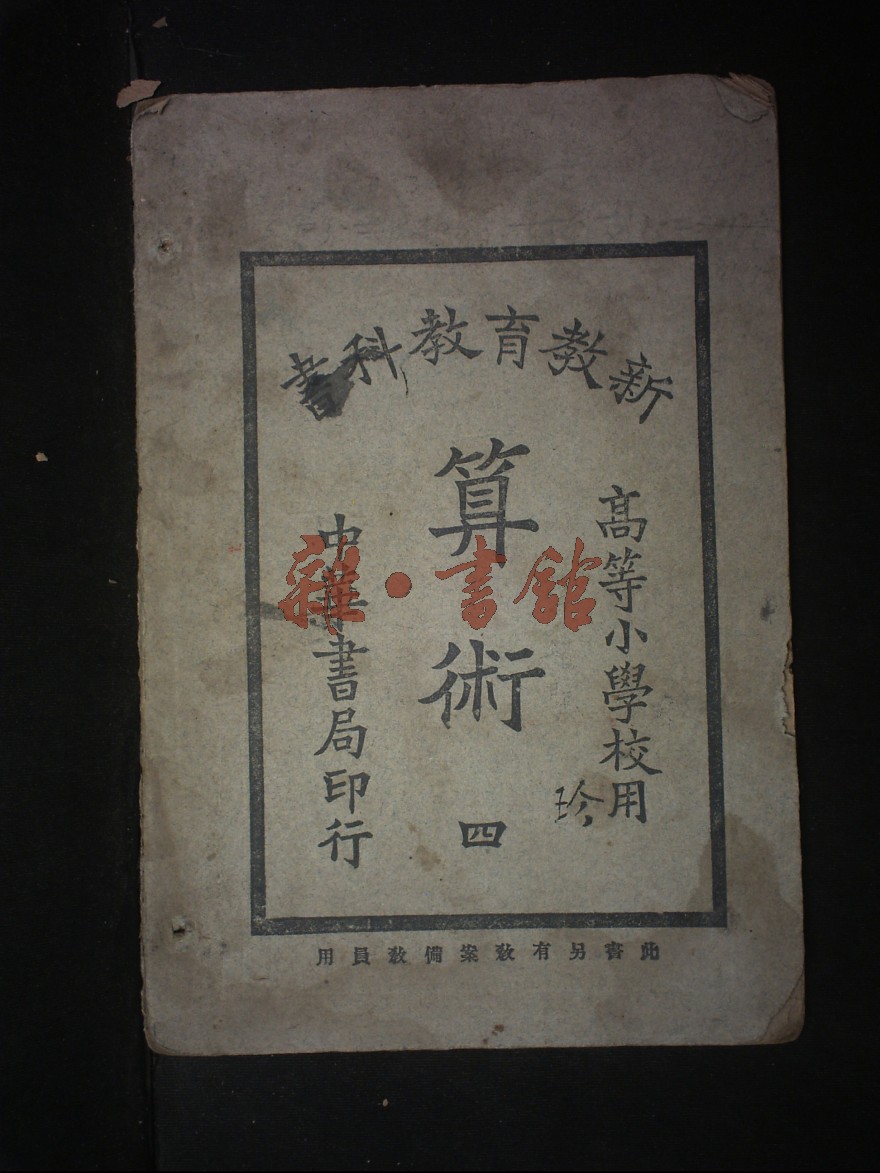 新教育教科書
高等小學校用
珍
算術 四
中華書局印行
此書另有教案備教員用
雜·書館